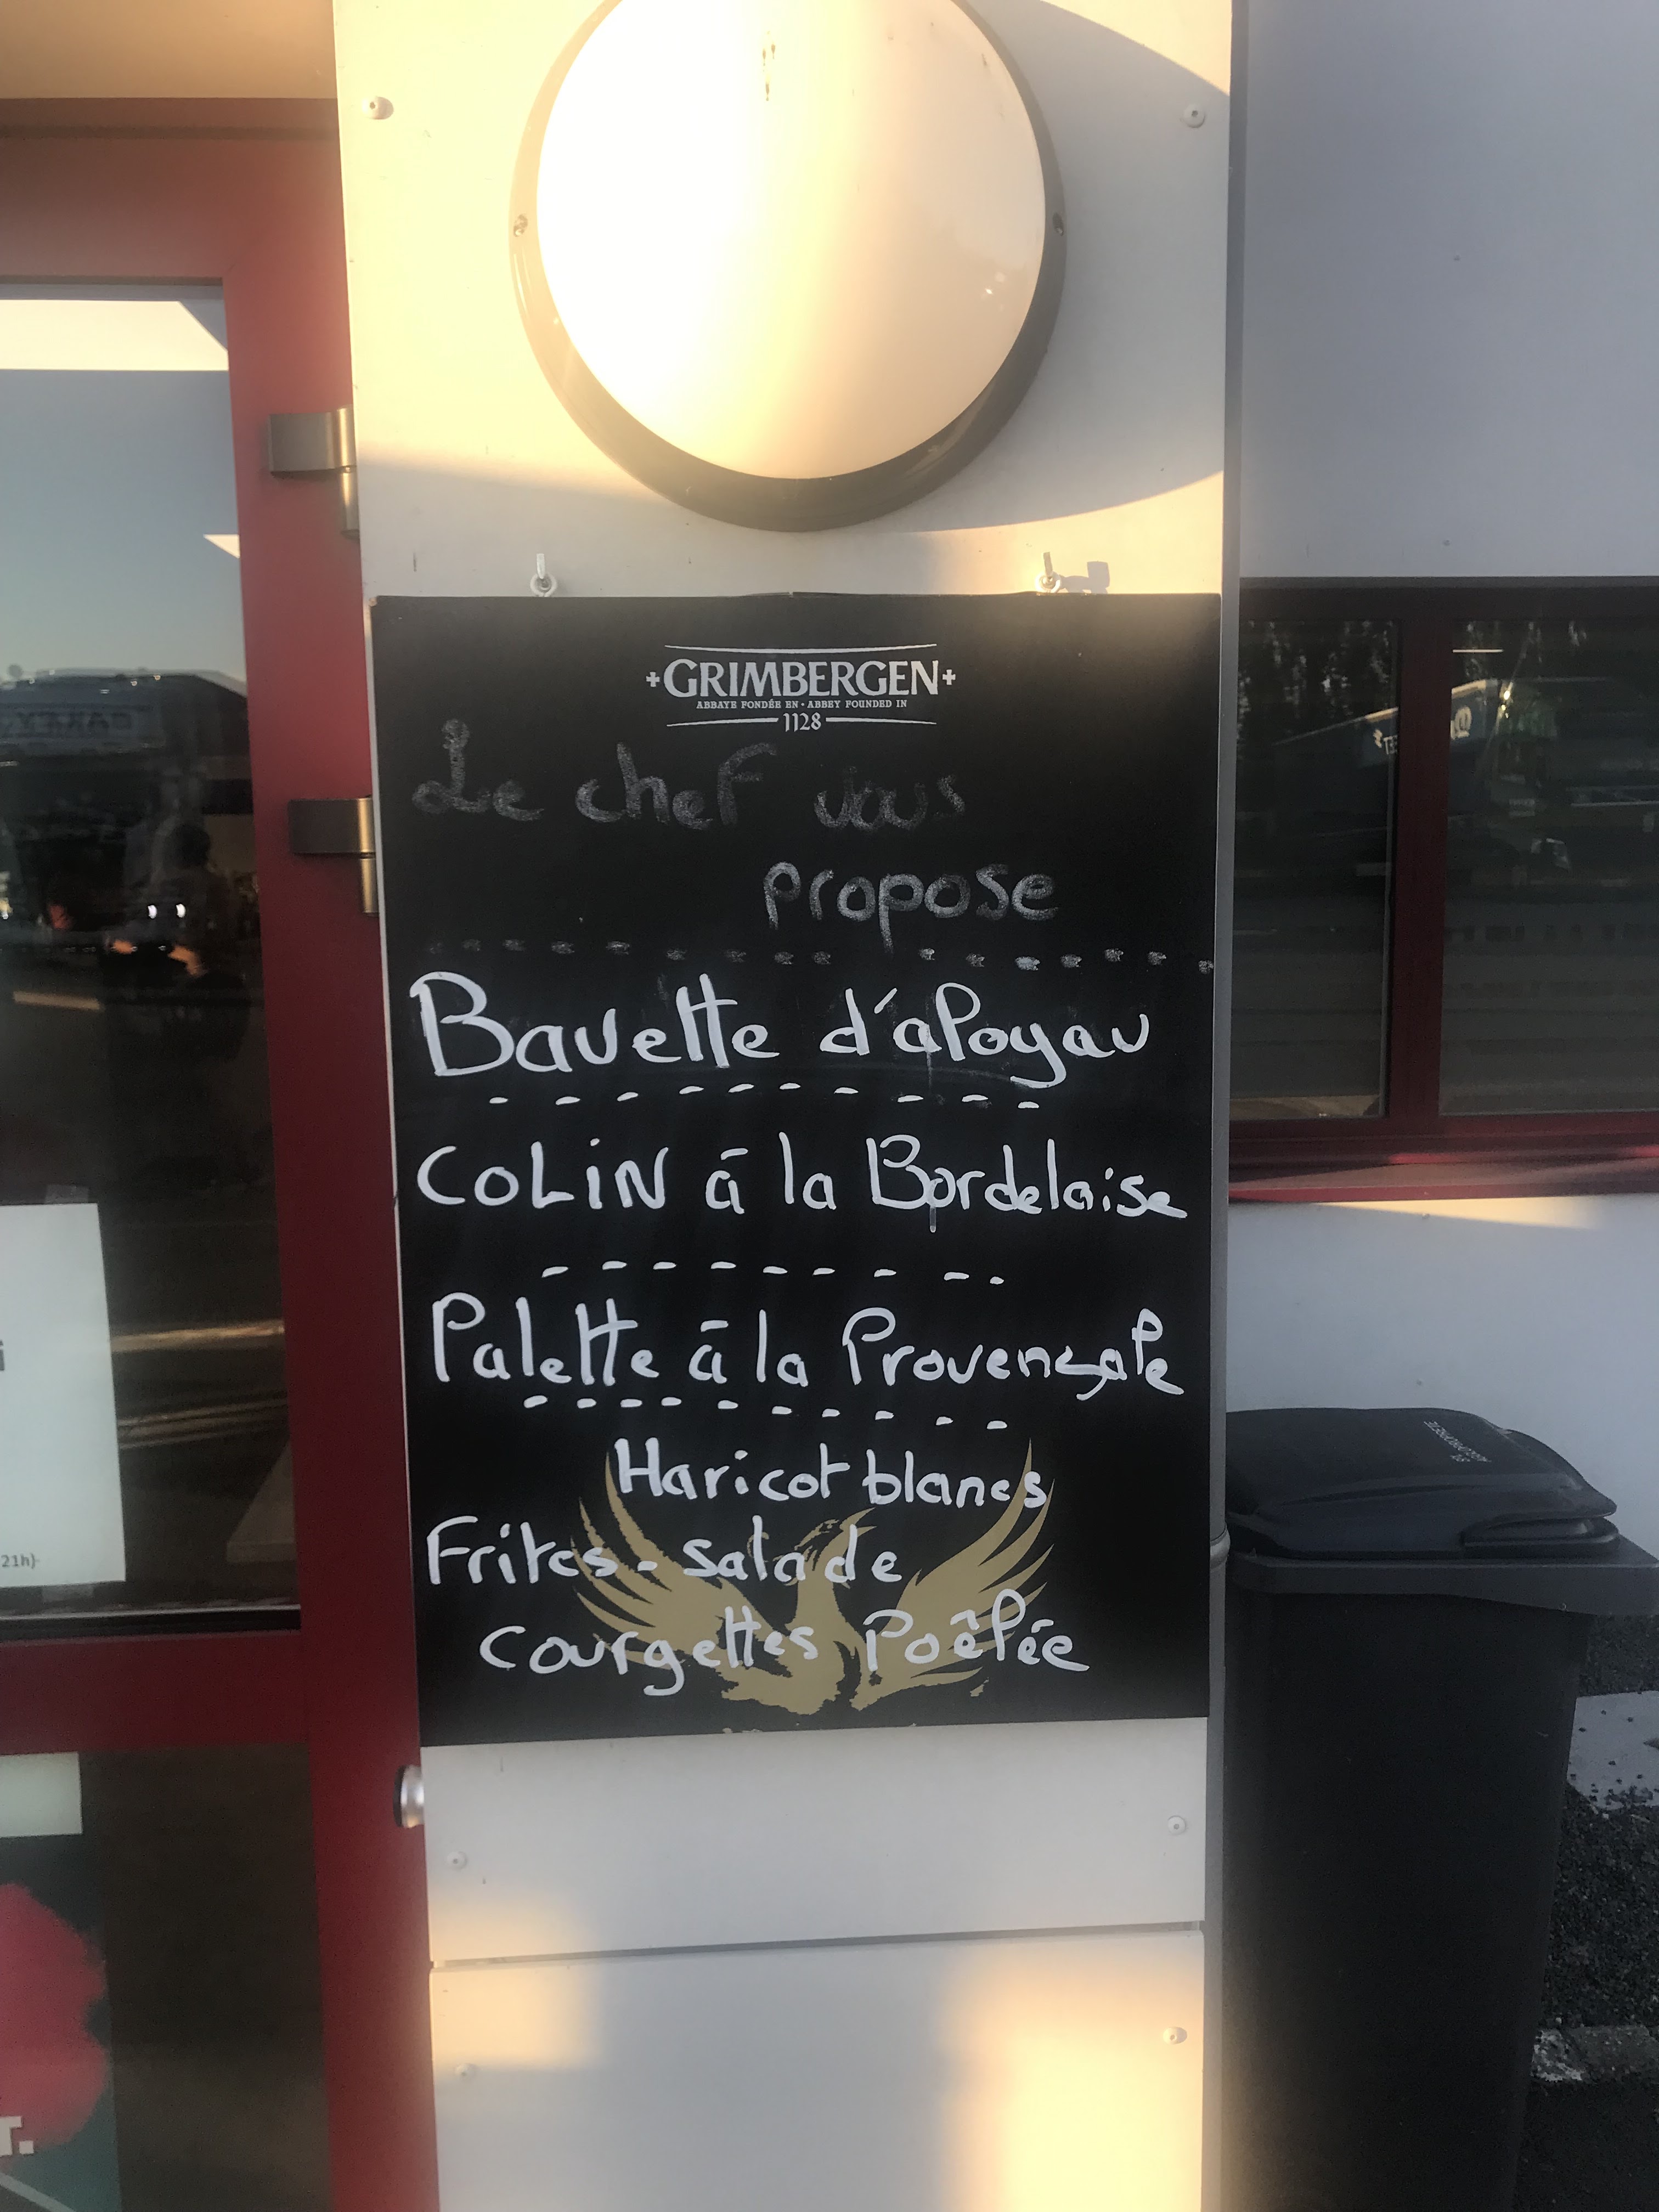 GRIMBERGEN
ABBAYE FONDÉE EN • ABBEY FOUNDED IN
1128
Le cheF vous
propose
Bavette d'aloyau
COLiN à la Bordelaise
Palette à la Provençale
Haricot blancs
Frites - salade
courgettes Poêlée
21h)
T.